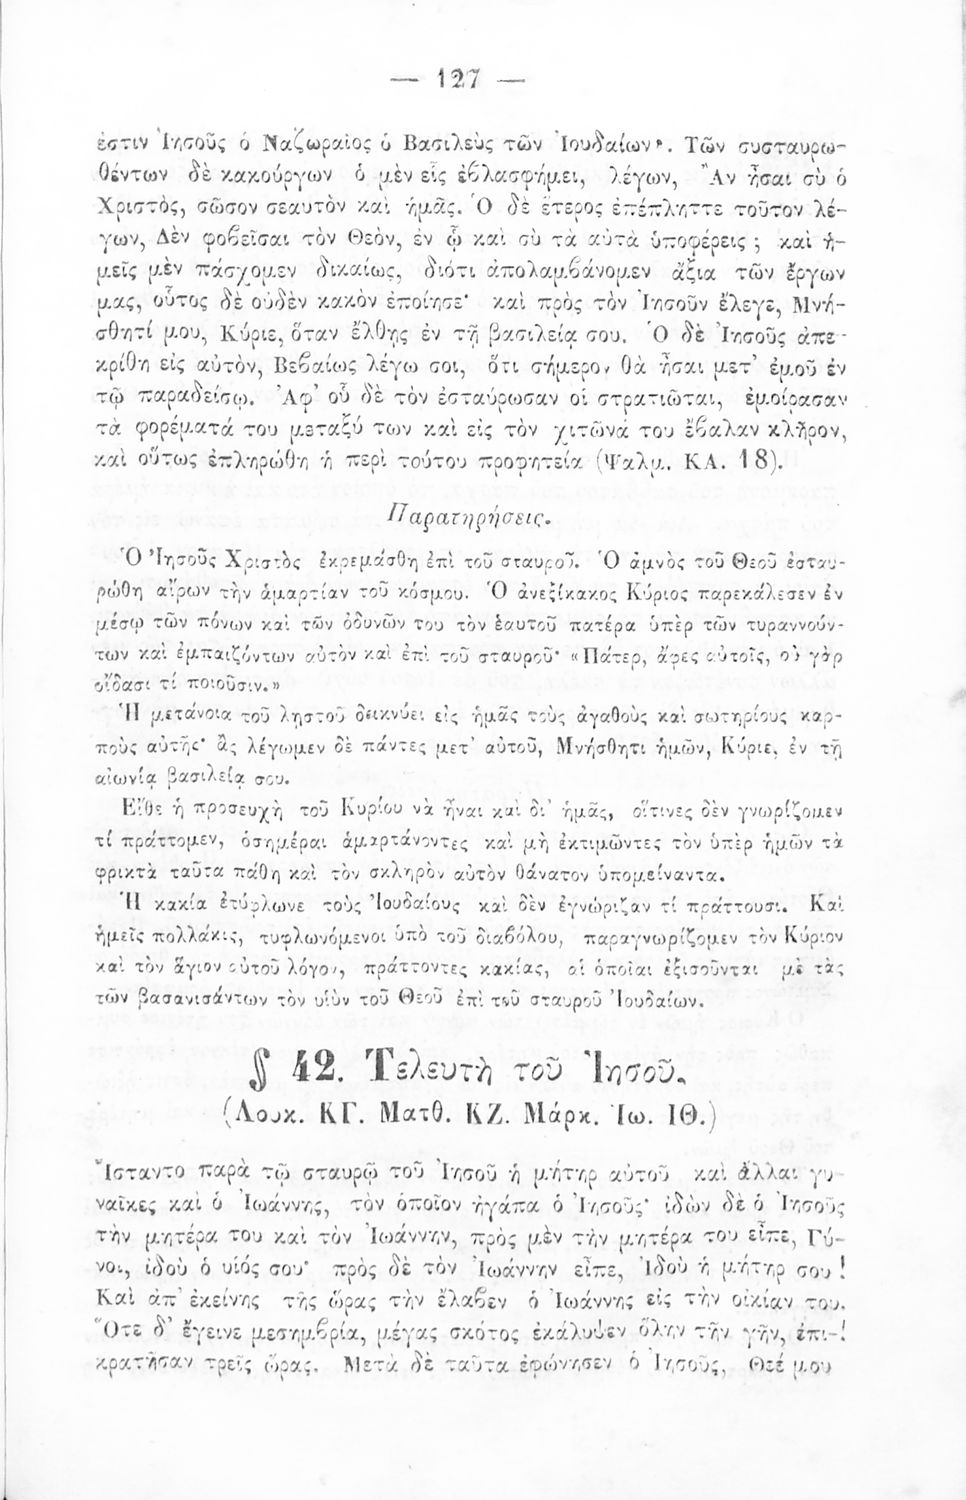 — 127 —
ἐστιν Ἰησοῦς ὁ Ναζωραῖος ὁ Βασιλεὺς τῶν Ἰουδαίων». Τῶν συσταυρω-
θέντων δὲ κακούργων ὁ μὲν εἷς ἐβλασφήμει, λέγων, Ἂν ᾖσαι σὺ ὁ
Χριστὸς, σῶσον σεαυτὸν καὶ ἡμᾶς. Ὁ δὲ ἕτερος ἐπέπληττε τοῦτον λέ-
γων, Δὲν φοβεῖσαι τὸν Θεὸν, ἐν ᾧ καὶ σὺ τὰ αὐτὰ ὑποφέρεις ; καὶ ἡ-
μεῖς μὲν πάσχομεν δικαίως, διότι ἀπολαμβάνομεν ἄξια τῶν ἔργων
μας, οὗτος δὲ οὐδὲν κακὸν ἐποίησε· καὶ πρὸς τὸν Ἰησοῦν ἔλεγε, Μνή-
σθητί μου, Κύριε, ὅταν ἔλθῃς ἐν τῇ βασιλείᾳ σου. Ὁ δὲ Ἰησοῦς ἀπε-
κρίθη εἰς αὐτὸν, Βεβαίως λέγω σοι, ὅτι σήμερον θὰ ᾖσαι μετ’ ἐμοῦ ἐν
τῷ παραδείσῳ. Ἀφ’ οὗ δὲ τὸν ἐσταύρωσαν οἱ στρατιῶται, ἐμοίρασαν
τὰ φορέματά του μεταξύ των καὶ εἰς τὸν χιτῶνά του ἔβαλαν κλῆρον,
καὶ οὕτως ἐπληρώθη ἡ περὶ τούτου προφητεία (Ψαλμ. ΚΑ. 18).
Παρατηρήσεις.
Ὁ Ἰησοῦς Χριστὸς ἐκρεμάσθη ἐπὶ τοῦ σταυροῦ. Ὁ ἀμνὸς τοῦ Θεοῦ ἐσταυ-
ρώθη αἴρων τὴν ἁμαρτίαν τοῦ κόσμου. Ὁ ἀνεξίκακος Κύριος παρεκάλεσεν ἐν
μέσῳ τῶν πόνων καὶ τῶν ὀδυνῶν του τὸν ἑαυτοῦ πατέρα ὑπὲρ τῶν τυραννούν-
των καὶ ἐμπαιζόντων αὐτὸν καὶ ἐπὶ τοῦ σταυροῦ· «Πάτερ, ἄφες αὐτοῖς, οὐ γὰρ
οἴδασι τί ποιοῦσιν.»
Ἡ μετάνοια τοῦ ληστοῦ δεικνύει εἰς ἡμᾶς τοὺς ἀγαθοὺς καὶ σωτηρίους καρ-
ποὺς αὐτῆς· ἂς λέγωμεν δὲ πάντες μετ’ αὐτοῦ, Μνήσθητι ἡμῶν, Κύριε, ἐν τῇ
αἰωνίᾳ βασιλείᾳ σου.
Εἴθε ἡ προσευχὴ τοῦ Κυρίου νὰ ᾖναι καὶ δι’ ἡμᾶς, οἵτινες δὲν γνωρίζομεν
τί πράττομεν, ὁσημέραι ἁμαρτάνοντες καὶ μὴ ἐκτιμῶντες τὸν ὑπὲρ ἡμῶν τὰ
φρικτὰ ταῦτα πάθη καὶ τὸν σκληρὸν αὐτὸν θάνατον ὑπομείναντα.
Ἡ κακία ἐτύφλωνε τοὺς Ἰουδαίους καὶ δὲν ἐγνώριζαν τί πράττουσι. Καὶ
ἡμεῖς πολλάκις, τυφλωνόμενοι ὑπὸ τοῦ διαβόλου, παραγνωρίζομεν τὸν Κύριον
καὶ τὸν ἅγιον αὐτοῦ λόγον, πράττοντες κακίας, αἱ ὁποῖαι ἐξισοῦνται μὲ τὰς
τῶν βασανισάντων τὸν υἱὸν τοῦ Θεοῦ ἐπὶ τοῦ σταυροῦ Ἰουδαίων.
§ 42. Τελευτὴ τοῦ Ἰησοῦ.
(Λουκ. ΚΓ. Ματθ. ΚΖ. Μάρκ. Ἰω. ΙΘ.)
Ἵσταντο παρὰ τῷ σταυρῷ τοῦ Ἰησοῦ ἡ μήτηρ αὐτοῦ καὶ ἄλλαι γυ-
ναῖκες καὶ ὁ Ἰωάννης, τὸν ὁποῖον ἠγάπα ὁ Ἰησοῦς· ἰδὼν δὲ ὁ Ἰησοῦς
τὴν μητέρα του καὶ τὸν Ἰωάννην, πρὸς μὲν τὴν μητέρα του εἶπε, Γύ-
ναι, ἰδοὺ ὁ υἱός σου· πρὸς δὲ τὸν Ἰωάννην εἶπε, Ἰδοὺ ἡ μήτηρ σου !
Καὶ ἀπ’ ἐκείνης τῆς ὥρας τὴν ἔλαβεν ὁ Ἰωάννης εἰς τὴν οἰκίαν του.
Ὅτε δ’ ἔγεινε μεσημβρία, μέγας σκότος ἐκάλυψεν ὅλην τὴν γῆν, ἐπι-
κρατῆσαν τρεῖς ὥρας. Μετὰ δὲ ταῦτα ἐφώνησεν ὁ Ἰησοῦς, Θεέ μου